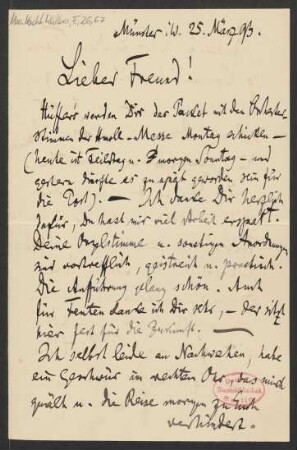 Münster i/W. 25. März 93.
Lieber Freund!
Hüffer's werden Dir das Packet mit den Orchester-
stimmen der Messe Montag schicken –
(heute ist Feiertag u. morgen Sonntag – und
gestern dürfte es zu spät geworden sein für
die Post). – Ich danke Dir herzlich
dafür, Du hast mir viel Arbeit erspart.
Deine Orgelstimme u. sonstigen Anordnungen
sind vortrefflich, geistreich u. practisch.
Die Aufführung gelang schön. Auch
für danke ich Dir sehr, – der sitzt
hier fest für die Zukunft. –
Ich selbst leide an Nachwehen, habe
ein Geschwür im rechten Ohr, das mich
quält u. die Reise morgen
verhindert.